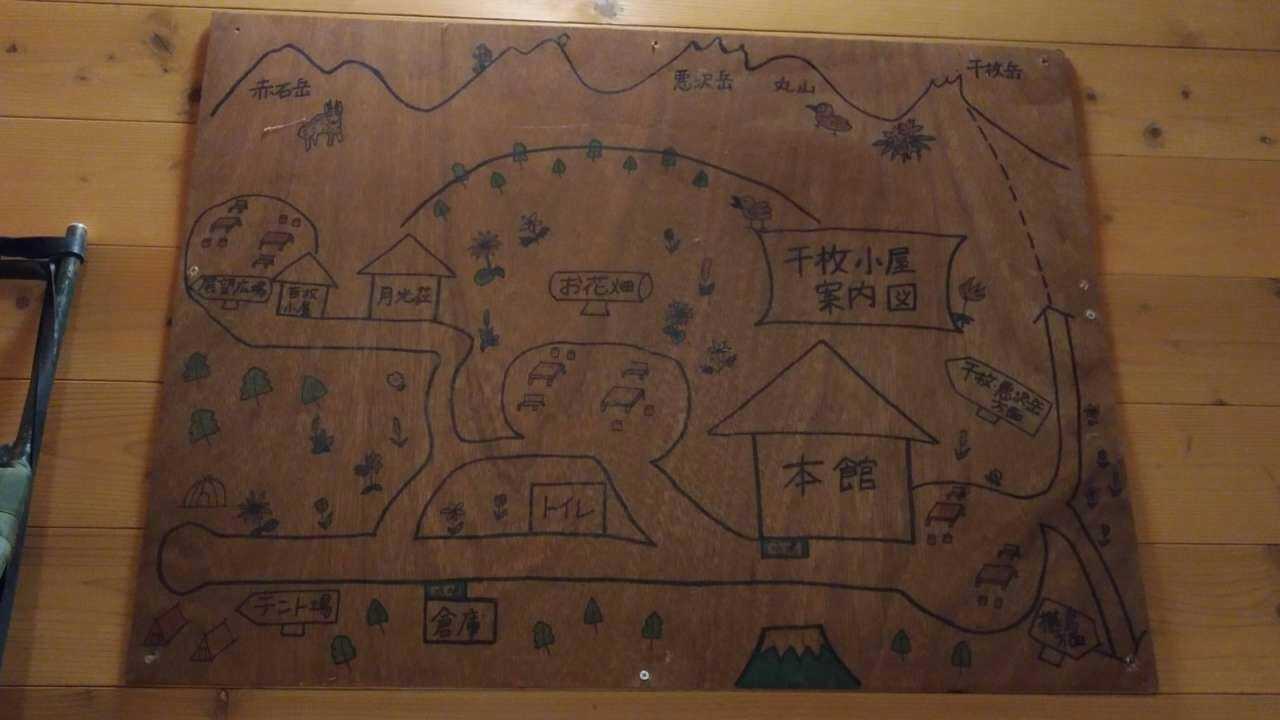 赤石岳
悪沢岳
丸山
千枚岳
千枚小屋
案内図
展望広場
百枚
小屋
月光荘
お花畑
千枚・悪沢岳
方面
本館
トイレ
テント場
倉庫
椹島
方面